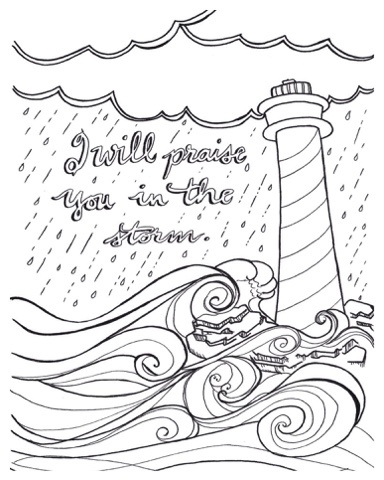 I will praise
you in the
storm.